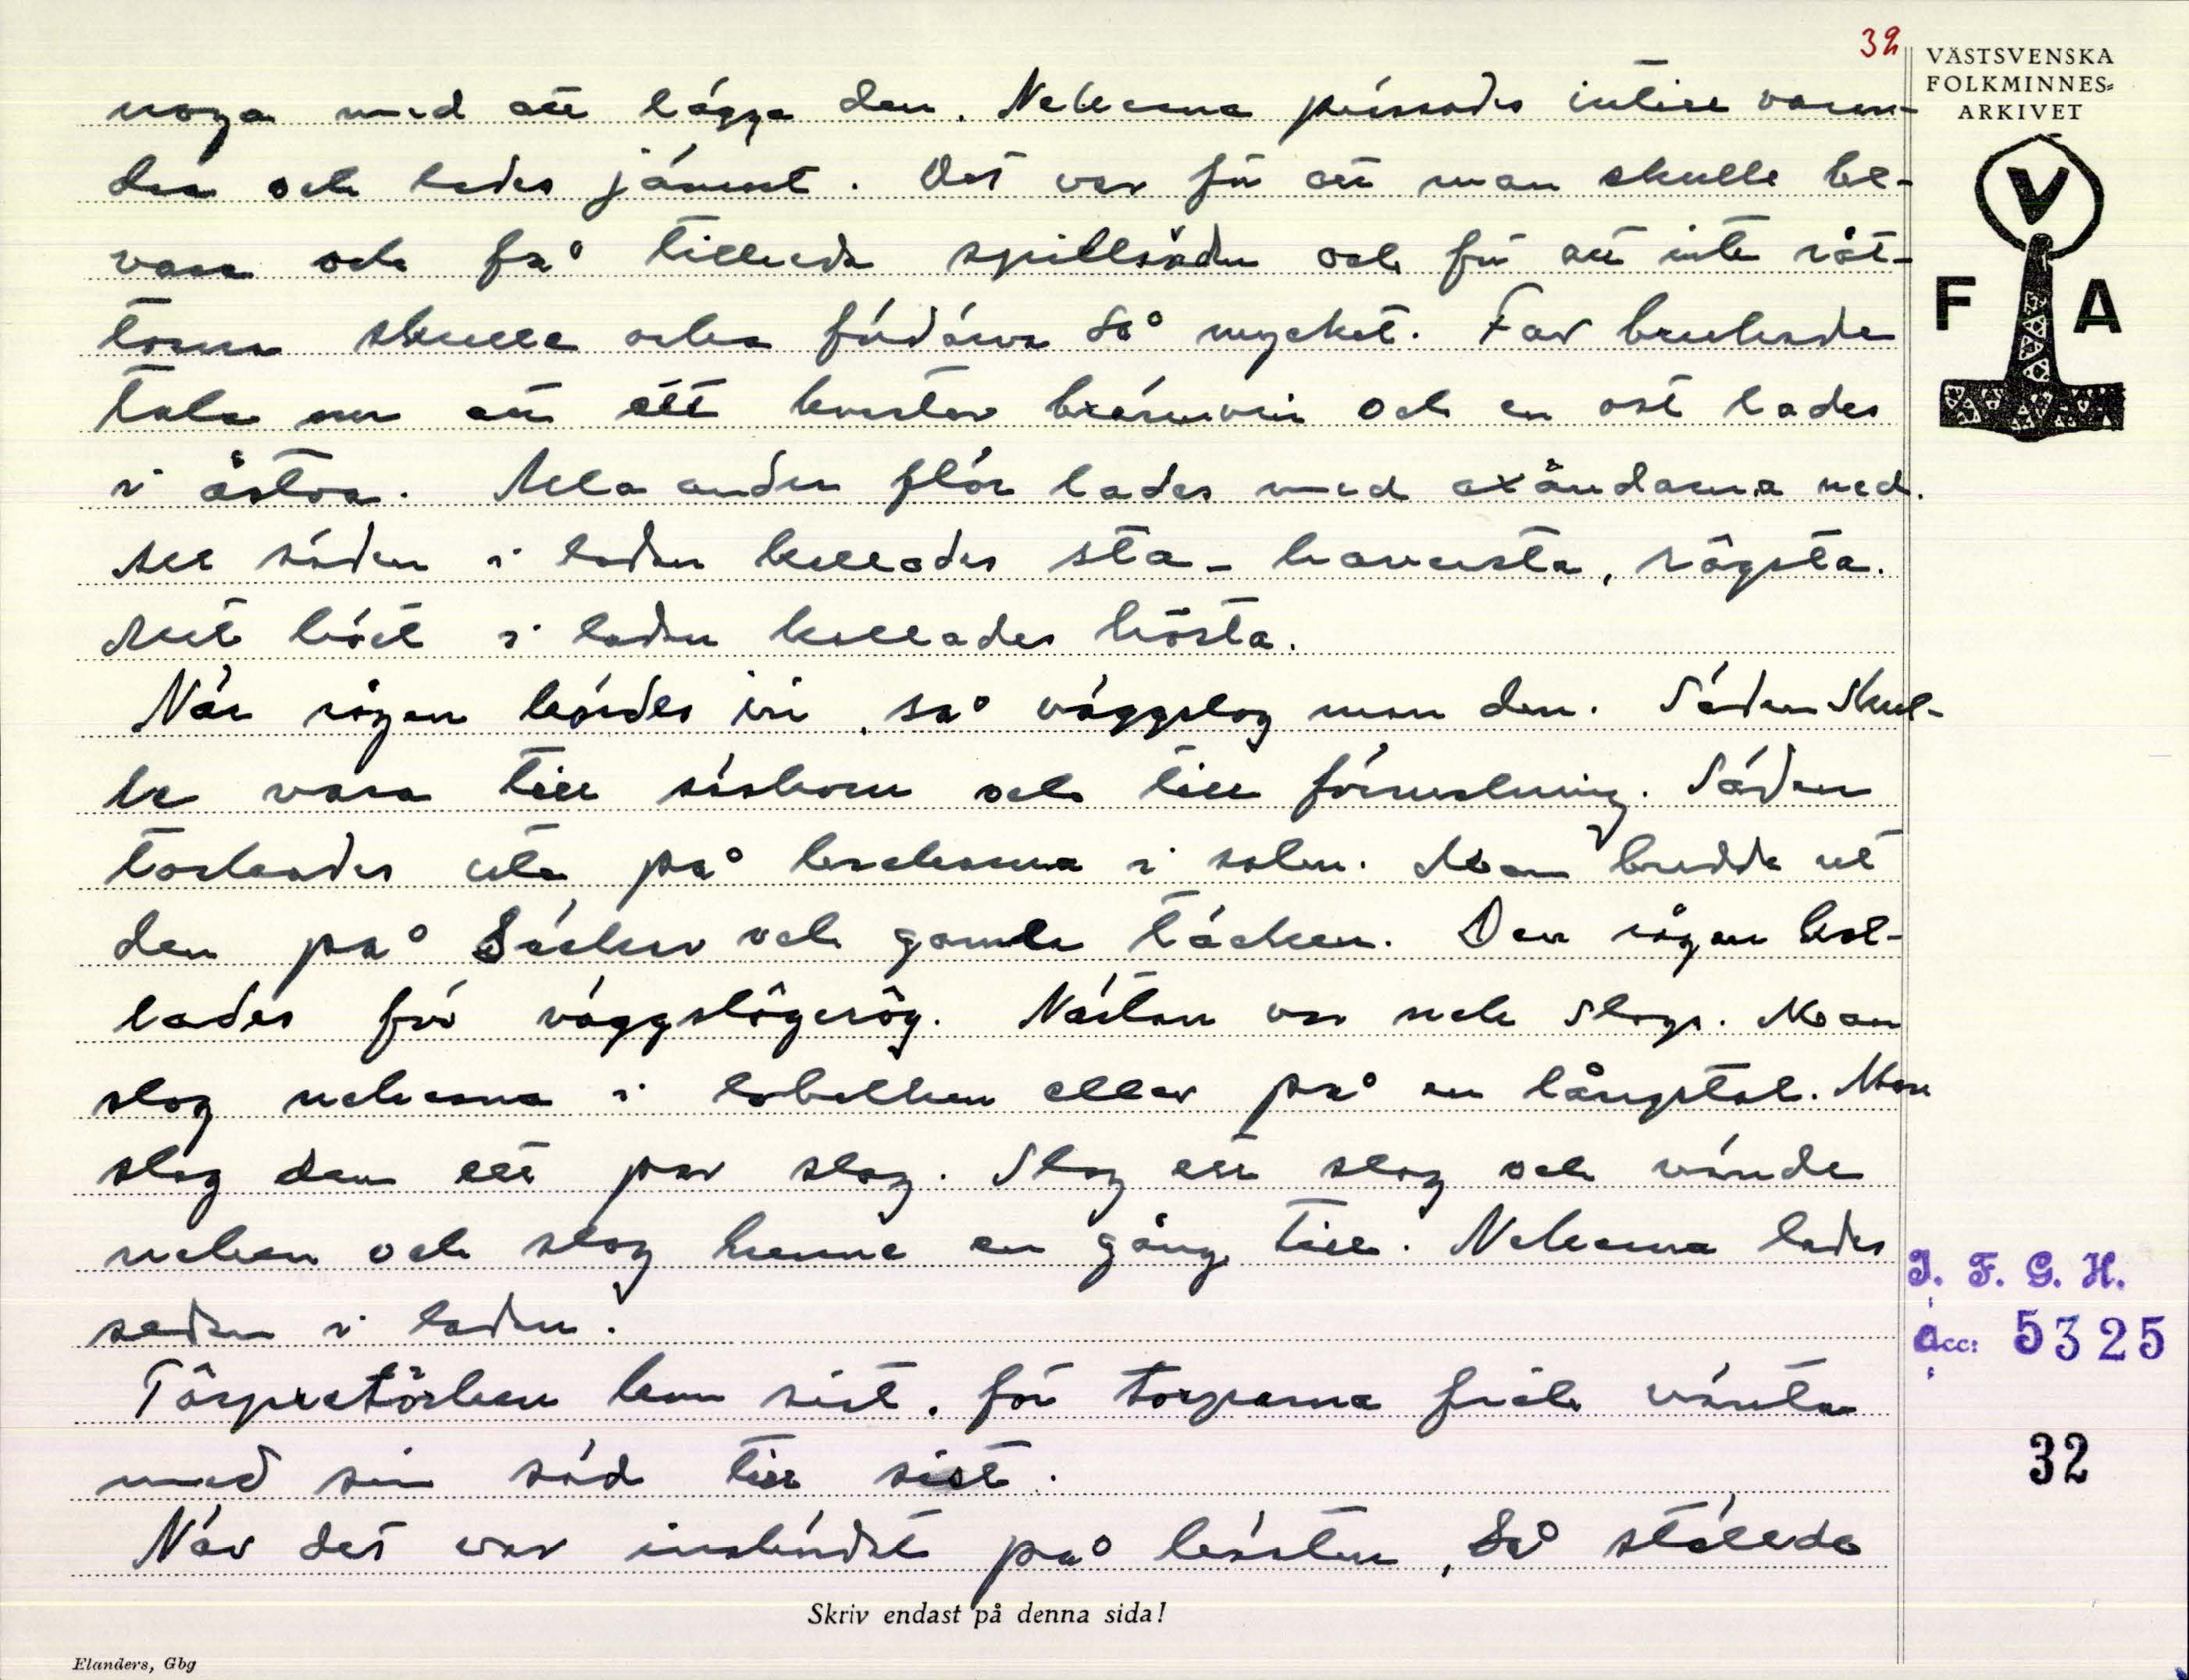 32
VÄSTSVENSKA
FOLKMINNES-
ARKIVET
V
F A
noga med att lägga den. Nekerna pressades intill varan-
dra och lades jämnt. Det var för att man skulle be-
vara och få tillreda spillsäden och för att inte råt-
torna skulle orka fördärva så mycket. Far brukade
tala om att ett kvarter brännvin och en ost lades
i åstoa. Alla andra flör lades med axändarna ned.
All säden i ladan kallades sta - haversta, rågsta.
Allt höet i ladan kallades hösta.
När rågen kördes in, så väggslog man den. Säden skul-
le vara till såskorn och till förmalning. Säden
torkades ute på backarna i solen. Man bredde ut
den på säcker och gamla täcken. Den rågen kal-
lades för väggslögeråg. Nästan var nek slogs. Man
slog nekerna i lobalken eller på en långstol. Man
slog dem ett par slag. Slog ett slag och vände
neken och slog henne en gång till. Nekerna lades
sedan i ladan.
Tårpretörken kom sist, för torparna fick vänta
med sin säd till sist.
När det var inskördat på hösten, så ställde
I. F. G. H.
Acc: 5325
32
Skriv endast på denna sida!
Elanders, Gbg